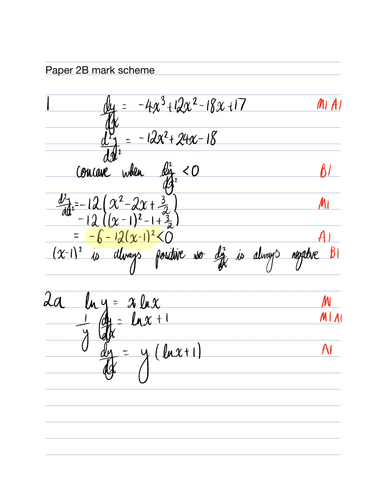 Paper 2B mark scheme
1 dy/dx = -4x³+12x²-18x+17 M1 A1
d²y/dx² = -12x²+24x-18
concave when d²y/dx² <0 B1
d²y/dx² = -12(x²-2x+3/2) M1
-12((x-1)²-1+3/2)
= -6-12(x-1)²<0 A1
(x-1)² is always positive so d²y/dx² is always negative B1
2a ln y = x ln x M1
1/y dy/dx = lnx+1 M1 A1
dy/dx = y(lnx+1) A1